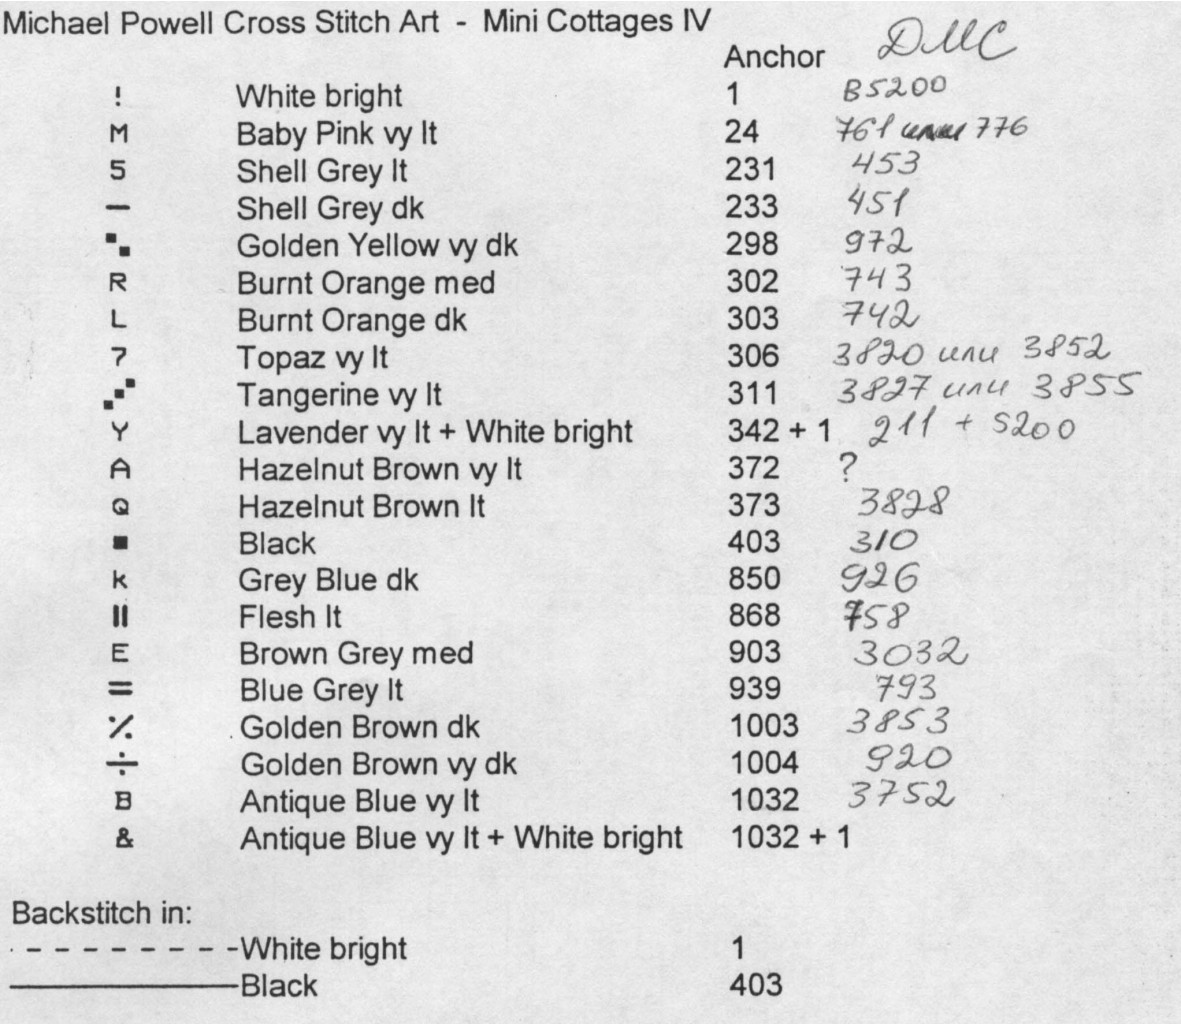 Michael Powell Cross Stitch Art - Mini Cottages IV
Anchor DMC
! White bright 1 B5200
M Baby Pink vy lt 24 761 или 776
5 Shell Grey lt 231 453
Shell Grey dk 233 451
Golden Yellow vy dk 298 972
R Burnt Orange med 302 743
L Burnt Orange dk 303 742
7 Topaz vy lt 306 3820 или 3852
Tangerine vy lt 311 3827 или 3855
Y Lavender vy lt + White bright 342 + 1 211 + 5200
A Hazelnut Brown vy lt 372 ?
Q Hazelnut Brown lt 373 3828
■ Black 403 310
k Grey Blue dk 850 926
II Flesh lt 868 758
E Brown Grey med 903 3032
= Blue Grey lt 939 793
٪ Golden Brown dk 1003 3853
÷ Golden Brown vy dk 1004 920
B Antique Blue vy lt 1032 3752
& Antique Blue vy lt + White bright 1032 + 1
Backstitch in:
- - - - - - - - - -White bright 1
Black 403